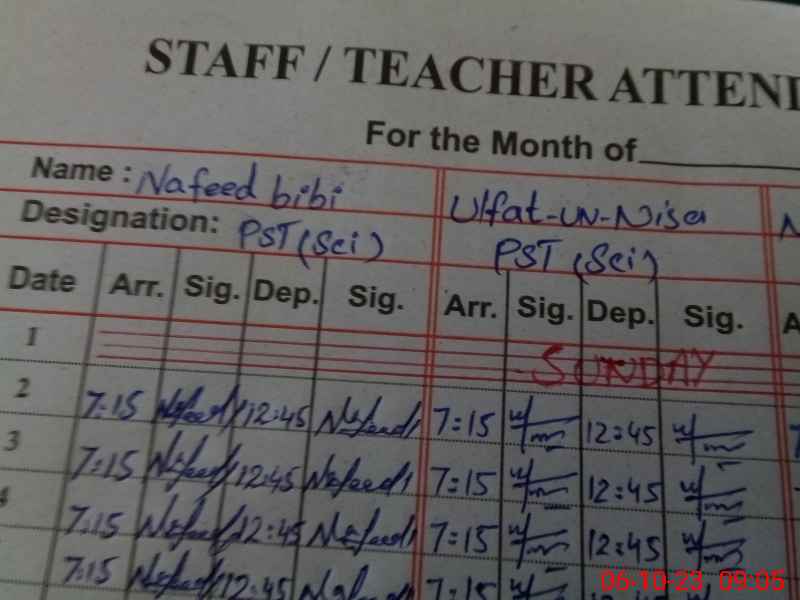 STAFF / TEACHER ATTEND
For the Month of
Name : Nafeed bibi Ulfat-un-Nisa N
Designation: PST (Sci) PST (Sci)
Date Arr. Sig. Dep. Sig. Arr. Sig. Dep. Sig. A
1 SUNDAY
2 7:15 Nafeed 12:45 Nafeed 7:15 12:45
3 7:15 Nafeed 12:45 Nafeed 7:15 12:45
4 7:15 Nafeed 12:45 Nafeed 7:15 12:45
7:15 Nafeed 12:45 Nafeed 7:15
06-10-23, 09:05